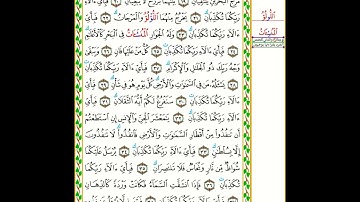 مَرَجَ ٱلْبَحْرَيْنِ يَلْتَقِيَانِ بَيْنَهُمَا بَرْزَخٌ لَّا يَبْغِيَانِ فَبِأَيِّ
ءَالَآءِ رَبِّكُمَا تُكَذِّبَانِ يَخْرُجُ مِنْهُمَا ٱللُّؤْلُؤُ وَٱلْمَرْجَانُ فَبِأَيِّ
ءَالَآءِ رَبِّكُمَا تُكَذِّبَانِ وَلَهُ ٱلْجَوَارِ ٱلْمُنشَـَٔاتُ فِي ٱلْبَحْرِ كَٱلْأَعْلَٰمِ
فَبِأَيِّ ءَالَآءِ رَبِّكُمَا تُكَذِّبَانِ كُلُّ مَنْ عَلَيْهَا فَانٍ وَيَبْقَىٰ
وَجْهُ رَبِّكَ ذُو ٱلْجَلَٰلِ وَٱلْإِكْرَامِ فَبِأَيِّ ءَالَآءِ رَبِّكُمَا تُكَذِّبَانِ
يَسْـَٔلُهُ مَن فِي ٱلسَّمَٰوَٰتِ وَٱلْأَرْضِ كُلَّ يَوْمٍ هُوَ فِي شَأْنٍ فَبِأَيِّ
ءَالَآءِ رَبِّكُمَا تُكَذِّبَانِ سَنَفْرُغُ لَكُمْ أَيُّهَ ٱلثَّقَلَانِ فَبِأَيِّ
ءَالَآءِ رَبِّكُمَا تُكَذِّبَانِ يَٰمَعْشَرَ ٱلْجِنِّ وَٱلْإِنسِ إِنِ ٱسْتَطَعْتُمْ
أَن تَنفُذُوا۟ مِنْ أَقْطَارِ ٱلسَّمَٰوَٰتِ وَٱلْأَرْضِ فَٱنفُذُوا۟ لَا تَنفُذُونَ
إِلَّا بِسُلْطَٰنٍ فَبِأَيِّ ءَالَآءِ رَبِّكُمَا تُكَذِّبَانِ يُرْسَلُ عَلَيْكُمَا
شُوَاظٌ مِّن نَّارٍ وَنُحَاسٌ فَلَا تَنتَصِرَانِ فَبِأَيِّ ءَالَآءِ رَبِّكُمَا
تُكَذِّبَانِ فَإِذَا ٱنشَقَّتِ ٱلسَّمَآءُ فَكَانَتْ وَرْدَةً كَٱلدِّهَانِ
ٱللُّؤْلُؤُ
ٱلْمُنشَـَٔاتُ